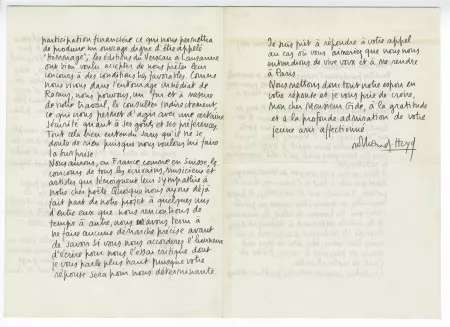 participation financière ce qui nous permettra
de produire un ouvrage digne d'être appelé
"Hommage", les éditions du Verseau à Lausanne
ont bien voulu accepter de nous prêter leur
concours à des conditions très favorables. Comme
nous vivons dans l'entourage immédiat de
Ramuz, nous pouvons, au fur et à mesure
de notre travail, le consulter indirectement,
ce qui nous permet d'agir avec une certaine
sécurité quant à ses goûts et ses préférences.
Tout cela bien entendu sans qu'il ne se
doute de rien puisque nous voulons lui faire
la surprise.
Nous aurons, en France comme en Suisse, le
concours de tous les écrivains, musiciens et
artistes qui témoignent leur sympathie à
notre cher poète. Quoique nous ayons déjà
fait part de notre projet à quelques uns
d'entre eux que nous rencontrons de
temps à autre, nous avons tenu à
ne faire aucune démarche précise avant
de savoir si vous nous accorderez l'honneur
d'écrire pour nous l'essai critique dont
je vous parle plus haut puisque votre
réponse sera pour nous déterminante.
Je suis prêt à répondre à votre appel
au cas où vous aimeriez que nous nous
entendions de vive voix et à me rendre
à Paris.
Nous mettons donc tout notre espoir en
votre réponse et je vous prie de croire,
mon cher Monsieur Gide, à la gratitude
et à la profonde admiration de votre
jeune ami affectionné